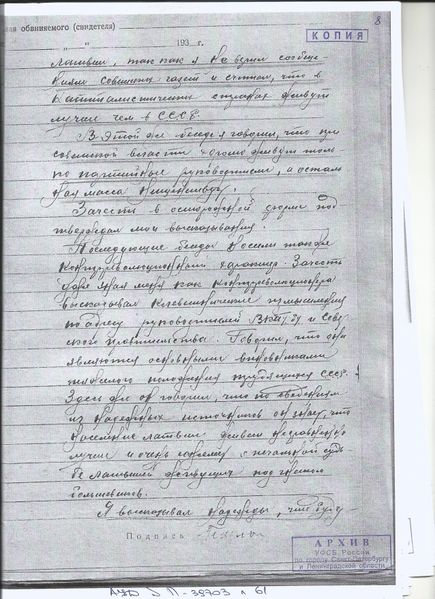 ля обвиняемого (свидетеля)
8
" " 193 г.
КОПИЯ
латвии, так как я не верил сообще-
ниям советских газет и считал, что в
капиталистических странах живут
лучше чем в СССР.
В этой же беседе я говорил, что при
советской власти хорошо живут толь
ко партийные руководители, а осталь
ная масса нищенствует.
в осторожной форме под
тверждал мои высказывания.
Последующие беседы носили также
контрреволюционный характер.
зная меня как контрреволюционера
высказывал клеветнические измышления
по адресу руководителей ВКП(б) и Совет
ского правительства. Говорил, что они
являются основными виновниками
тяжелого положения трудящихся СССР.
Здесь же он говорил, что по сведениям
из надежных источников он знает, что
население латвии живет несравненно
лучше и очень сожалеет о печальной судь
бе латышей живущих под гнетом
большевиков.
Я высказывал надежды, что буду
Подпись
АРХИВ
УФСБ России
по городу Санкт-Петербургу
и Ленинградской области
П-38703 л 61